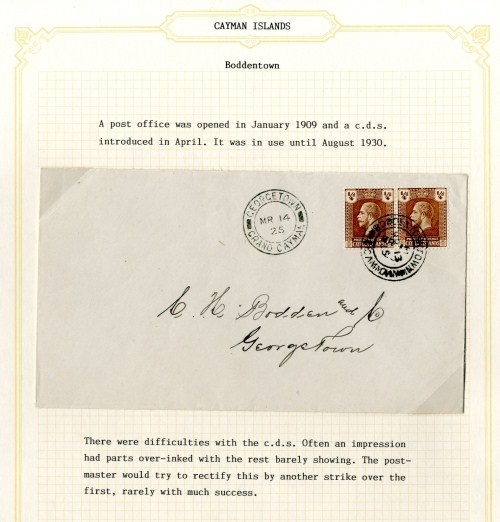 CAYMAN ISLANDS
Boddentown
A post office was opened in January 1909 and a c.d.s.
introduced in April. It was in use until August 1930.
GEORGETOWN
MR 14
25
GRAND CAYMAN
½d ½d ½d ½d
CAYMAN ISLANDS CAYMAN ISLANDS
C. H. Bodden and Co
Georgetown
There were difficulties with the c.d.s. Often an impression
had parts over-inked with the rest barely showing. The post-
master would try to rectify this by another strike over the
first, rarely with much success.